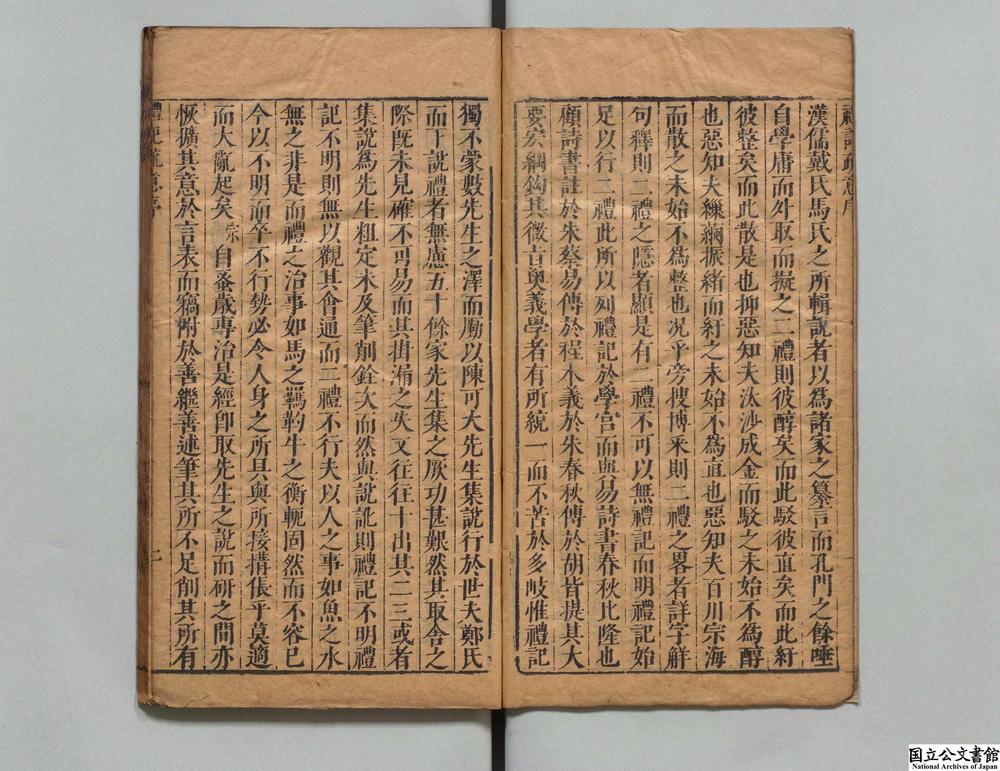 禮記疏意序
漢儒戴氏馬氏之所輯說者以爲諸家之纂言而孔門之餘唾
自學庸而外取而擬之二禮則彼醇矣而此駁彼直矣而此紆
彼整矣而此散是也抑惡知夫汰沙成金而駁之未始不爲醇
也惡知夫纚綱振緒而紆之未始不爲直也惡知夫百川宗海
而散之未始不爲整也况乎旁搜博采則二禮之畧者詳字解
句釋則二禮之隱者顯是有二禮不可以無禮記而明禮記始
足以行二禮此所以列禮記於學宫而與易詩書春秋比隆也
顧詩書註於朱蔡易傳於程本義於朱春秋傳於胡皆提其大
要宏綱鈎其微旨奥義學者有所統一而不苦於多岐惟禮記
獨不蒙數先生之澤而勵以陳可大先生集說行於世夫鄭氏
而下說禮者無慮五十餘家先生集之厥功甚艱然其取舍之
際既未見確不可易而其掛漏之失又往往十出其二三或者
集說爲先生粗定未及筆削銓次而然與說訛則禮記不明禮
記不明則無以觀其會通而二禮不行夫以人之事如魚之水
無之非是而禮之治事如馬之羈靮牛之衡軛固然而不容已
今以不明而卒不行勢必令人身之所具與所接搆倀乎莫適
而大亂起矣宗 自蚤歲專治是經卽取先生之說而研之間亦
恢擴其意於言表而竊附於善繼善述筆其所不足削其所有
禮記疏意序
二
国立公文書館
National Archives of Japan